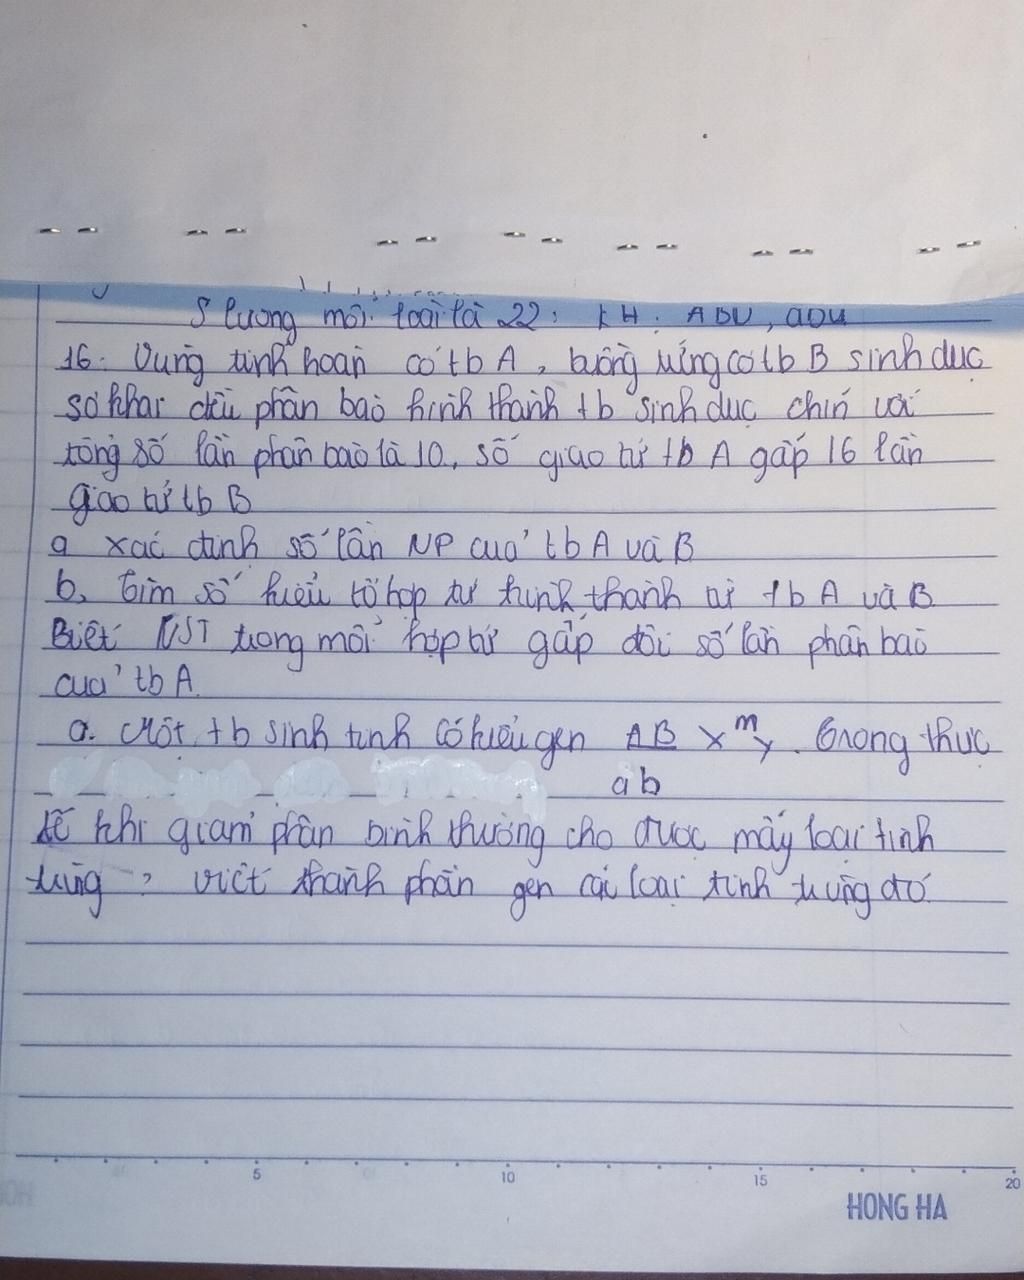 S lương mỗi loài là 22: KH. ABU, aDU
16. Vùng tinh hoàn có tb A, buồng trứng có tb B sinh dục
sơ khai đều phân bào hình thành tb sinh dục chín với
tổng số lần phân bào là 10, số giao tử tb A gấp 16 lần
giao tử tb B
a xác định số lần NP của tb A và B
b, Tìm số kiểu tổ hợp tử hình thành từ tb A và B
Biết NST trong mỗi hợp tử gấp đôi số lần phân bào
của tb A.
a. Một tb sinh tinh có kiểu gen AB X m Y. Trong thực
ab
tế khi giảm phân bình thường cho được mấy loại tinh
trùng, viết thành phần gen các loại tinh trùng đó.
5 10 15 20
HONG HA